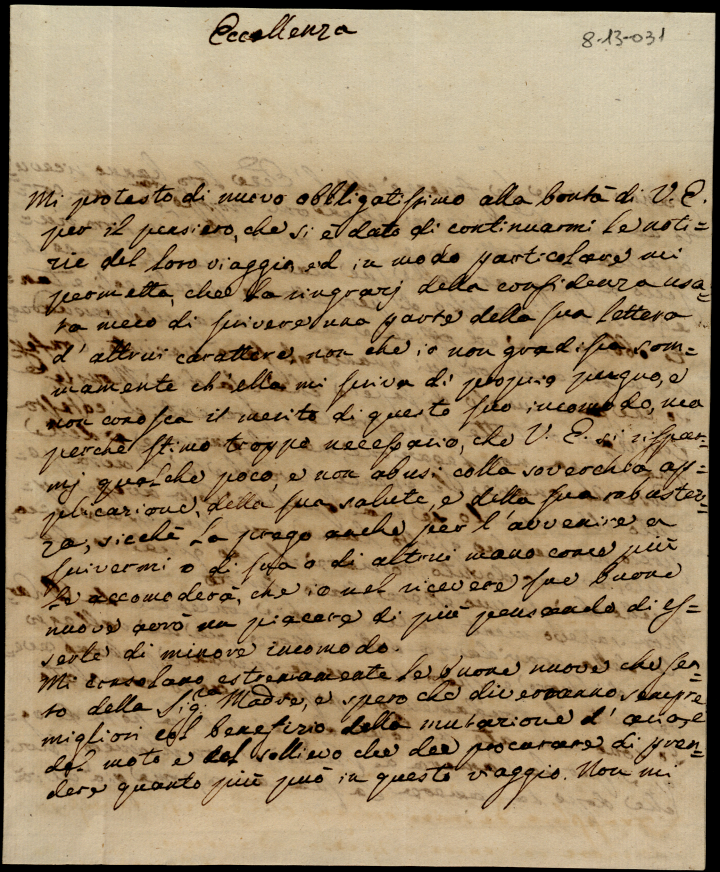 Eccellenza
8-13-031
Mi protesto di nuovo obbligatissimo alla bontà di V. E.
per il pensiero, che si è dato di continuarmi le noti=
zie del loro viaggio, ed in modo particolare mi
permetta, che La ringrazj della confidenza usa=
ta meco di scrivere una parte della sua lettera
d'altrui carattere, non che io non gradisca som=
mamente ch'ella mi scriva di proprio pugno, e
non conosca il merito di questo suo incomodo, ma
perchè stimo troppo necessario, che V. E. si rispar=
mj qualche poco, e non abusi colla soverchia ap=
plicazione, della sua salute, e della sua robustez=
za, sicchè La prego anche per l'avvenire a
scrivermi o di sua o di altrui mano come più
Le accomoderà, che io nel ricevere sue buone
nuove avrò un piacere di più pensando di es=
serle di minore incomodo.
Mi consolano estremamente le buone nuove che sen=
to della Sig.ra Madre, e spero che diveranno sempre
migliori col benefizio della mutazione d'aria, e
del moto e del sollievo che dee procurare di pren=
dere quanto più può in questo viaggio. Non mi